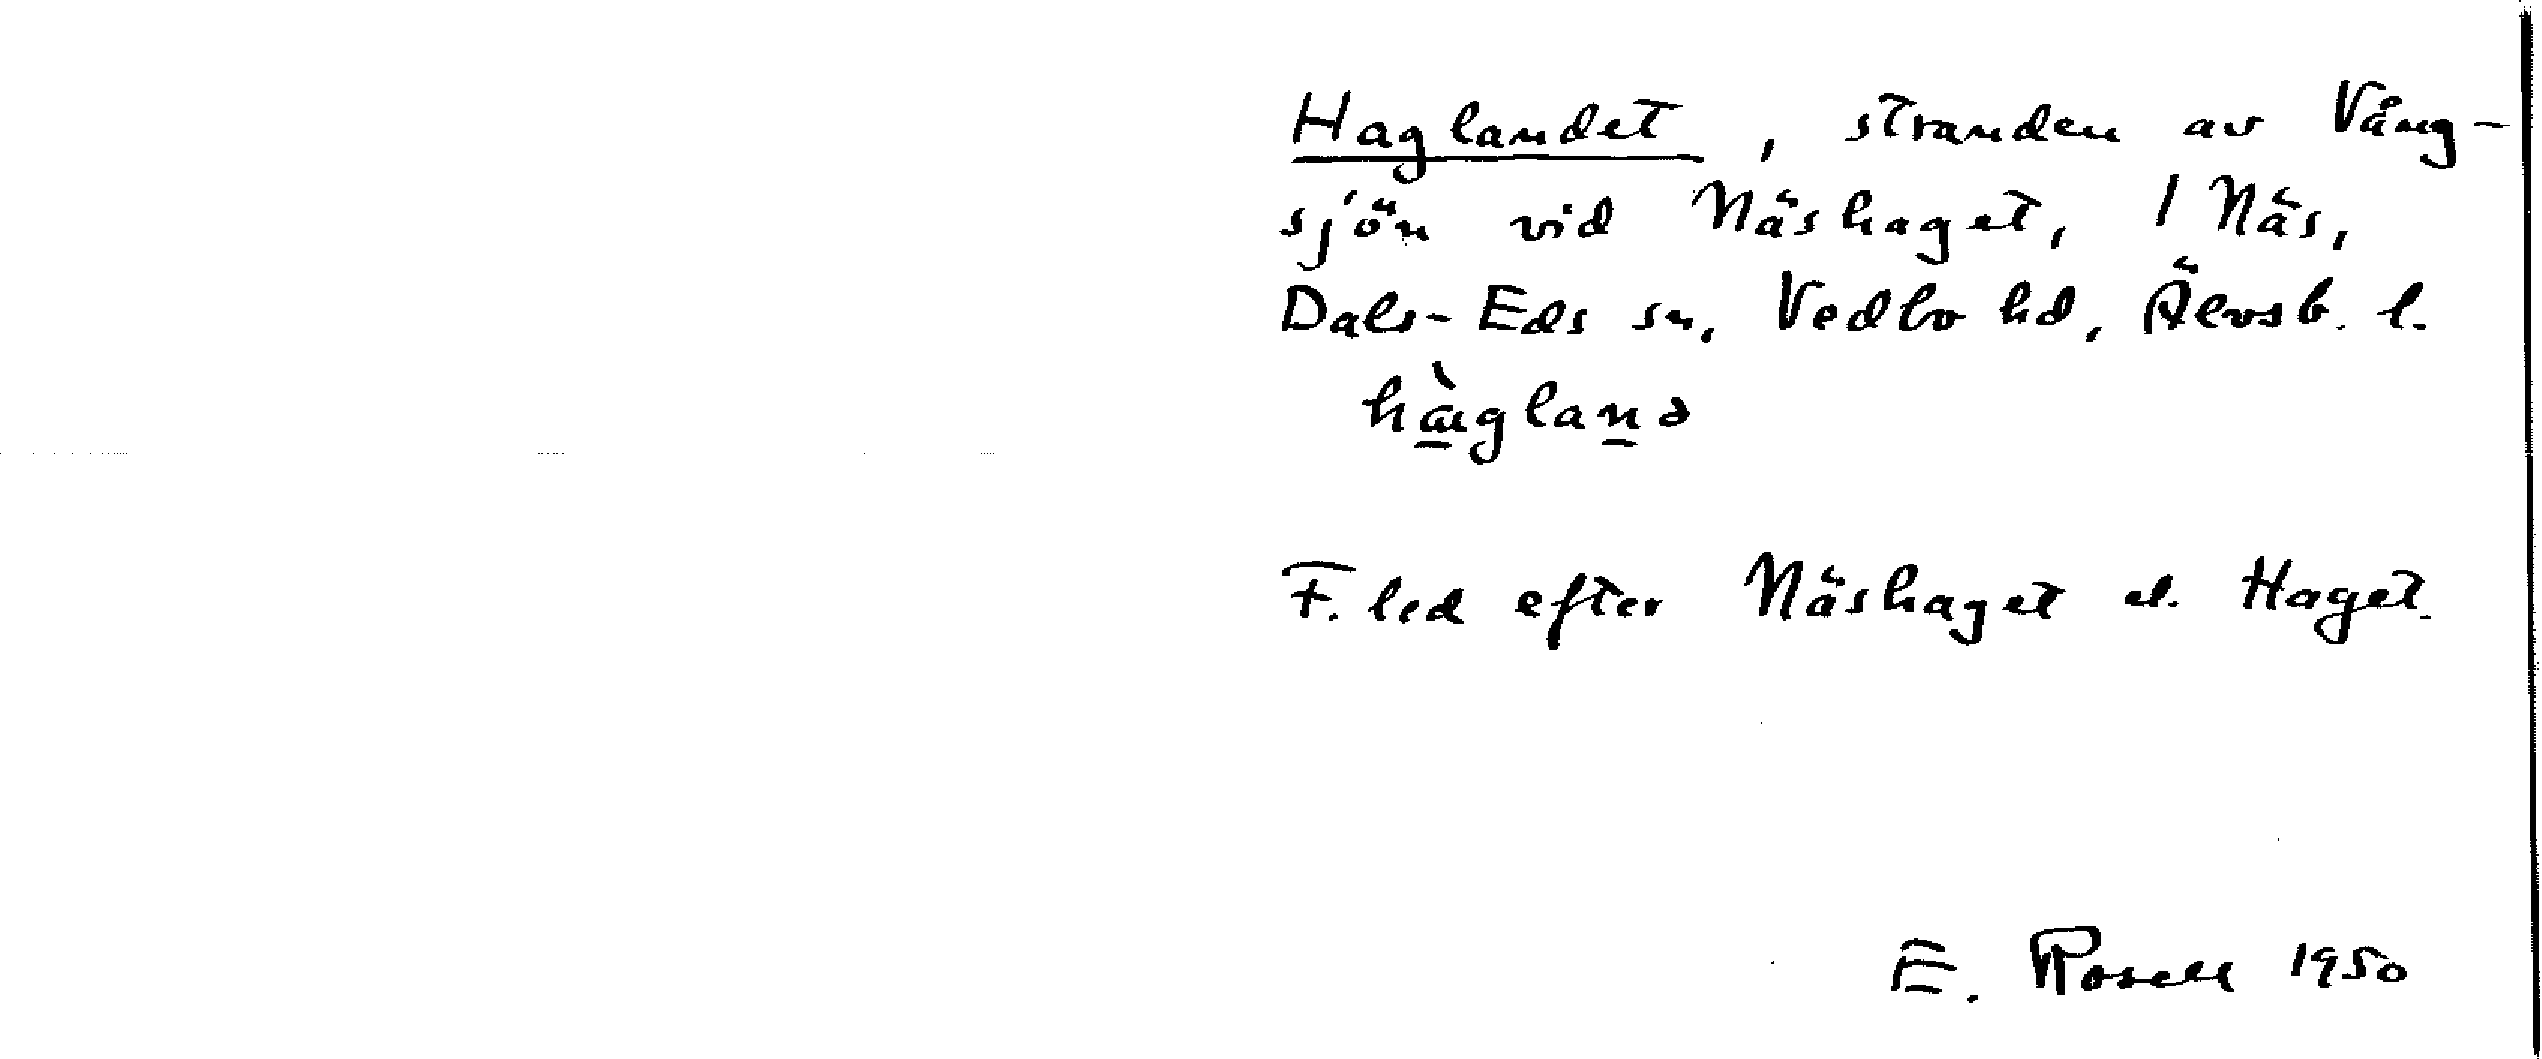 Haglandet, stranden av Vång-
sjön vid Näshaget, 1 Näs,
Dals-Eds sn, Vedbo hd, Älvsb. l.
hàglanə
F. led efter Näshaget el. Haget.
E. Rosell 1950